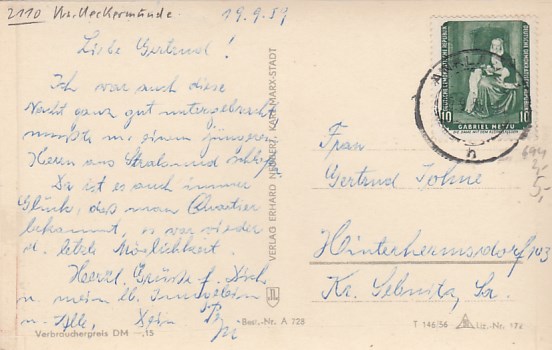 2110 Kr. Ueckermünde
19.9.59
Liebe Gertrud!
Ich war auch diese
Nacht ganz gut untergebracht
mußte m. einem jüngeren
Herrn aus Stralsund
Da ist es auch immer
Glück, daß man Quartier
bekommt, es war wieder
d. letzte Möglichkeit.
Herzl. Grüße f. Dich
u. mein lb.
u. Alle, Dein
Verbraucherpreis DM -,15
Best.-Nr. A 228
VERLAG ERHARD NEUBERT, KARL-MARX-STADT
DEUTSCHE DEMOKRATISCHE REPUBLIK
DEUTSCHE DEMOKRATISCHE REPUBLIK
10 10
GABRIEL METSU
Frau
Gertrud Tohne
Hinterhermsdorf
Kr. Sebnitz, Sa.
T 146/56 Liz.-Nr. 174